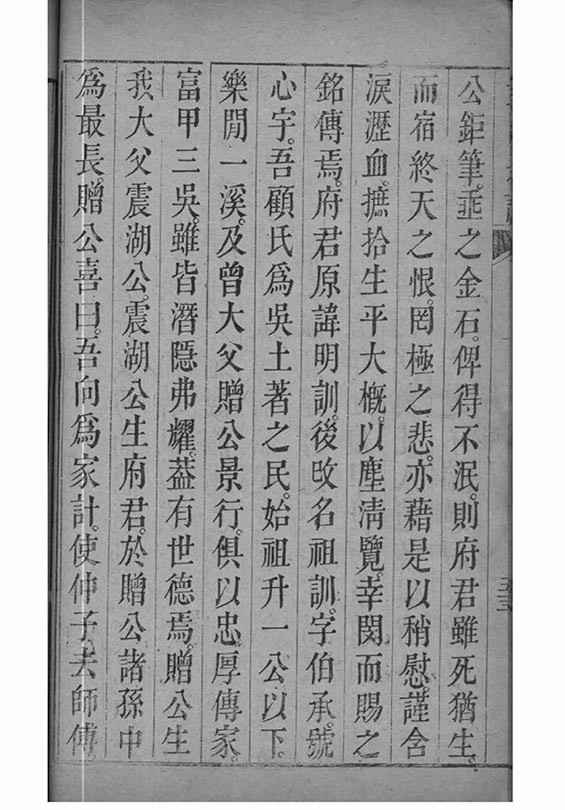 公鉅筆。垂之金石。俾得不泯。則府君雖死猶生。
而宿終天之恨。罔極之悲。亦藉是以稍慰。謹含
淚瀝血。摭拾生平大概。以塵清覽。幸閔而賜之
銘傳焉。府君原諱明訓。後改名祖訓。字伯承。號
心宇。吾顧氏爲吳土著之民。始祖升一公以下。
樂閒一溪。及曾大父贈公景行。俱以忠厚傳家。
富甲三吳。雖皆潛隱弗耀。葢有世德焉。贈公生
我大父震湖公。震湖公生府君。於贈公諸孫中
爲最長。贈公喜曰。吾向爲家計。使仲子去師傅。